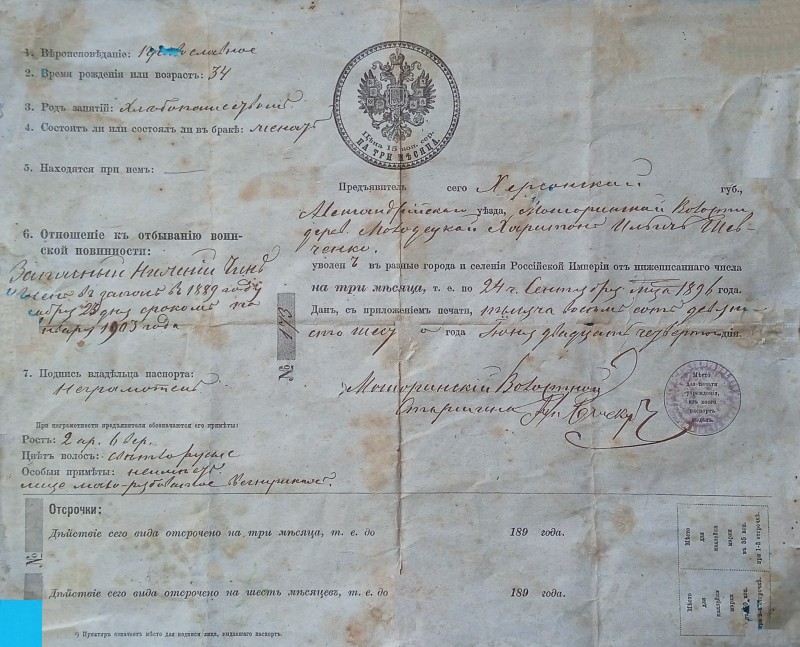 1. Вѣроисповѣданіе: православное
2. Время рожденія или возрастъ: 34
3. Родъ занятій: Хлѣбопашествомъ
4. Состоитъ ли или состоялъ ли въ бракѣ: женатъ
5. Находятся при немъ: —
6. Отношеніе къ отбыванію воинской повинности:
Запасный Нижній Чинъ
въ запасѣ въ 1889 году
23 дня срокомъ по
1903 года
7. Подпись владѣльца паспорта:
Неграмотенъ
При неграмотности предъявителя обозначаются его примѣты:
Ростъ: 2 ар. 6 вер.
Цвѣтъ волосъ: свѣтлорусые
Особыя примѣты: неимѣетъ
лицо
Цѣна 15 коп. сер.
НА ТРИ МѢСЯЦА.
Предъявитель сего Херсонской губ.,
Александрійскаго уѣзда, Мошоринской Волости
дерев. Молодецкой Харитонъ Ильичъ Шевченко
уволенъ въ разные города и селенія Россійской Имперіи отъ нижеписаннаго числа
на три мѣсяца, т. е. по 24 ч. Сентября м-ца 1896 года.
Данъ, съ приложеніемъ печати, тысяча восемь сотъ девяносто
шес о года Іюня двадцать четвертого дня.
№ 173
Мошоринскій Волостной
Старшина
Мѣсто
для печати
учрежденія,
изъ коего
паспортъ
выданъ.
Отсрочки:
№
Дѣйствіе сего вида отсрочено на три мѣсяца, т. е. до 189 года.
Дѣйствіе сего вида отсрочено на шесть мѣсяцевъ, т. е. до 189 года.
Мѣсто
для
наклейки
марки
въ 35 коп.
при 1-й отсрочкѣ.
Мѣсто
для
наклейки
марки
коп.
отсрочкѣ.
*) Пунктиръ означаетъ мѣсто для подписи лица, выдавшаго паспортъ.